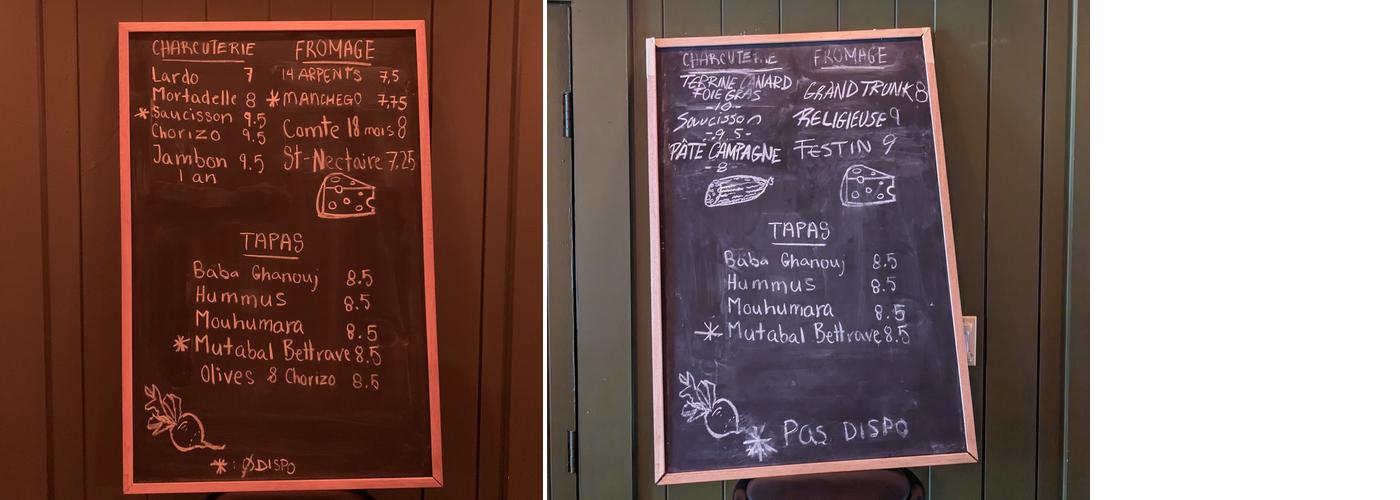 CHARCUTERIE
Lardo 7
Mortadelle 8
* Saucisson 9.5
Chorizo 9.5
Jambon 9.5
1 an
FROMAGE
14 ARPENTS 7,5
* MANCHEGO 7,75
Comte 18 mois 8
St-Nectaire 7,25
TAPAS
Baba Ghanouj 8.5
Hummus 8.5
Mouhumara 8.5
* Mutabal Bettrave 8.5
Olives & Chorizo 8.5
* : Ø DISPO
CHARCUTERIE
TERRINE CANARD
FOIE GRAS
-10-
Saucisson
-9.5-
PÂTÉ CAMPAGNE
-8-
FROMAGE
GRAND TRUNK 8
RELIGIEUSE 9
FESTIN 9
TAPAS
Baba Ghanouj 8.5
Hummus 8.5
Mouhumara 8.5
* Mutabal Bettrave 8.5
* Pas DISPO